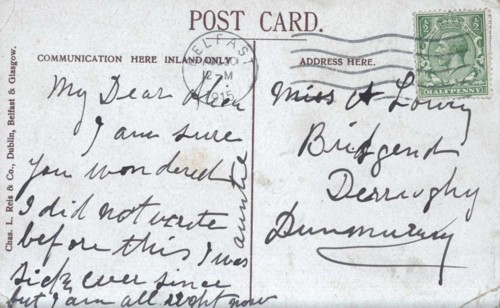 POST CARD.
COMMUNICATION HERE INLAND ONLY
ADDRESS HERE.
BELFAST
12 M
1915
HALFPENNY
Chas. L. Reis & Co., Dublin, Belfast & Glasgow.
My Dear
I am sure
you wondered
I did not write
before this I was
sick ever since
but I am all right now
auntie
Miss A Lowry
Bridgend
Derriaghy
Dunmurry